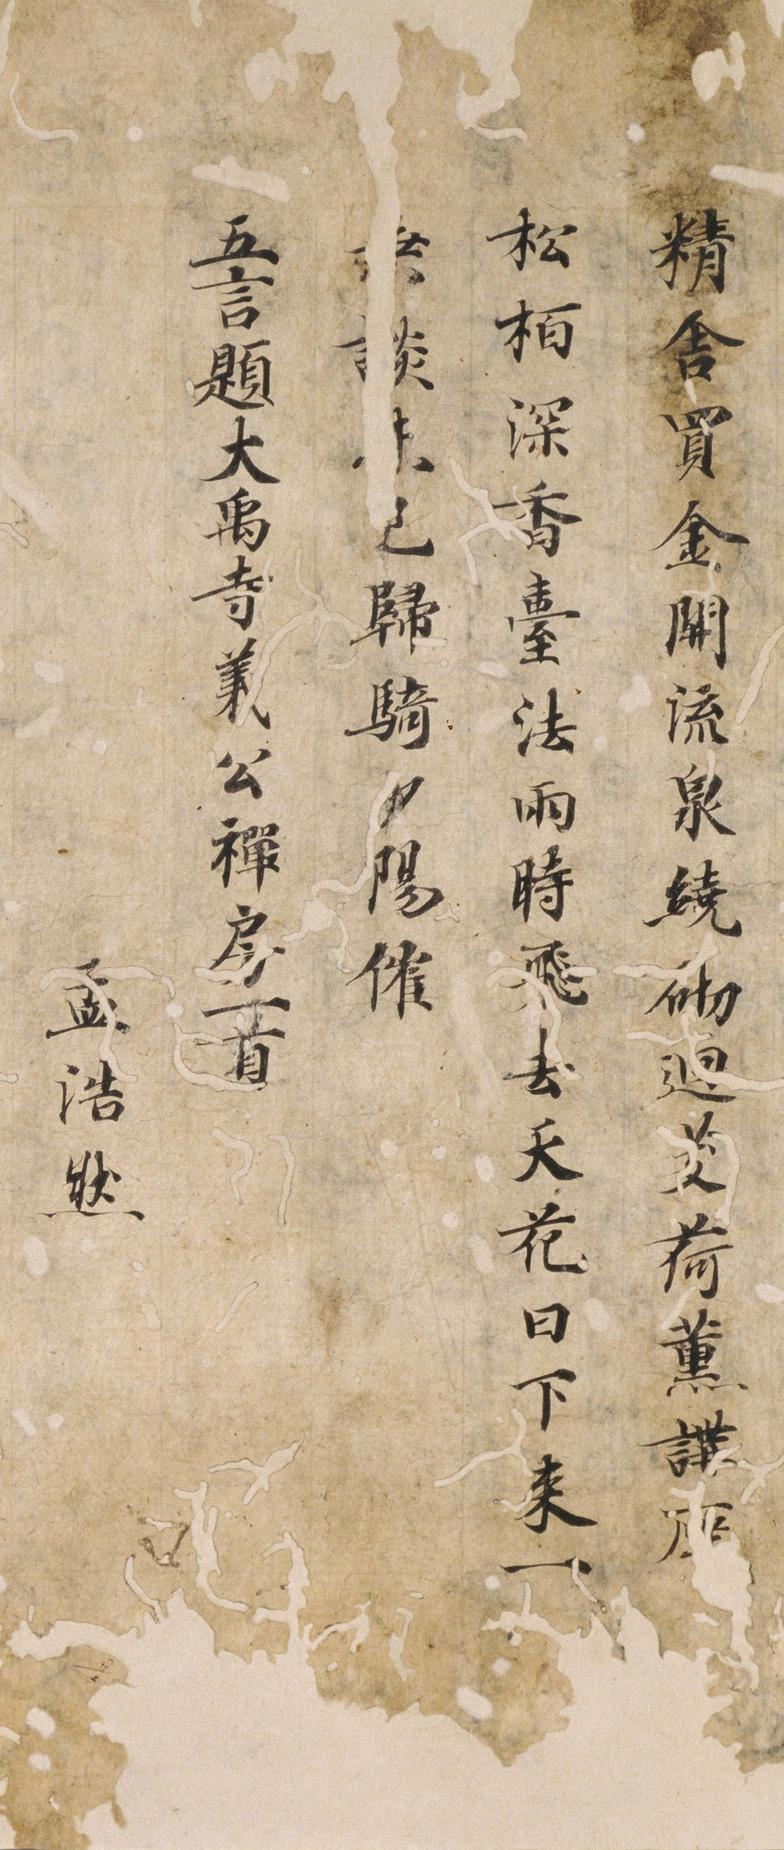 精舎買金開流泉繞砌迴芰荷薰講座
松栢深香臺法雨時飛去天花日下来一
談未已歸騎夕陽催
五言題大禹寺義公禪房一首
孟浩然